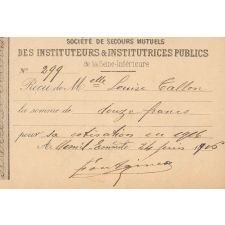 SOCIÉTÉ DE SECOURS MUTUELS
DES INSTITUTEURS & INSTITUTRICES PUBLICS
de la Seine-Inférieure
N° 299
Reçu de Melle Louise Tallon
la somme de douze francs
pour sa cotisation en 1906
24 juin 1906